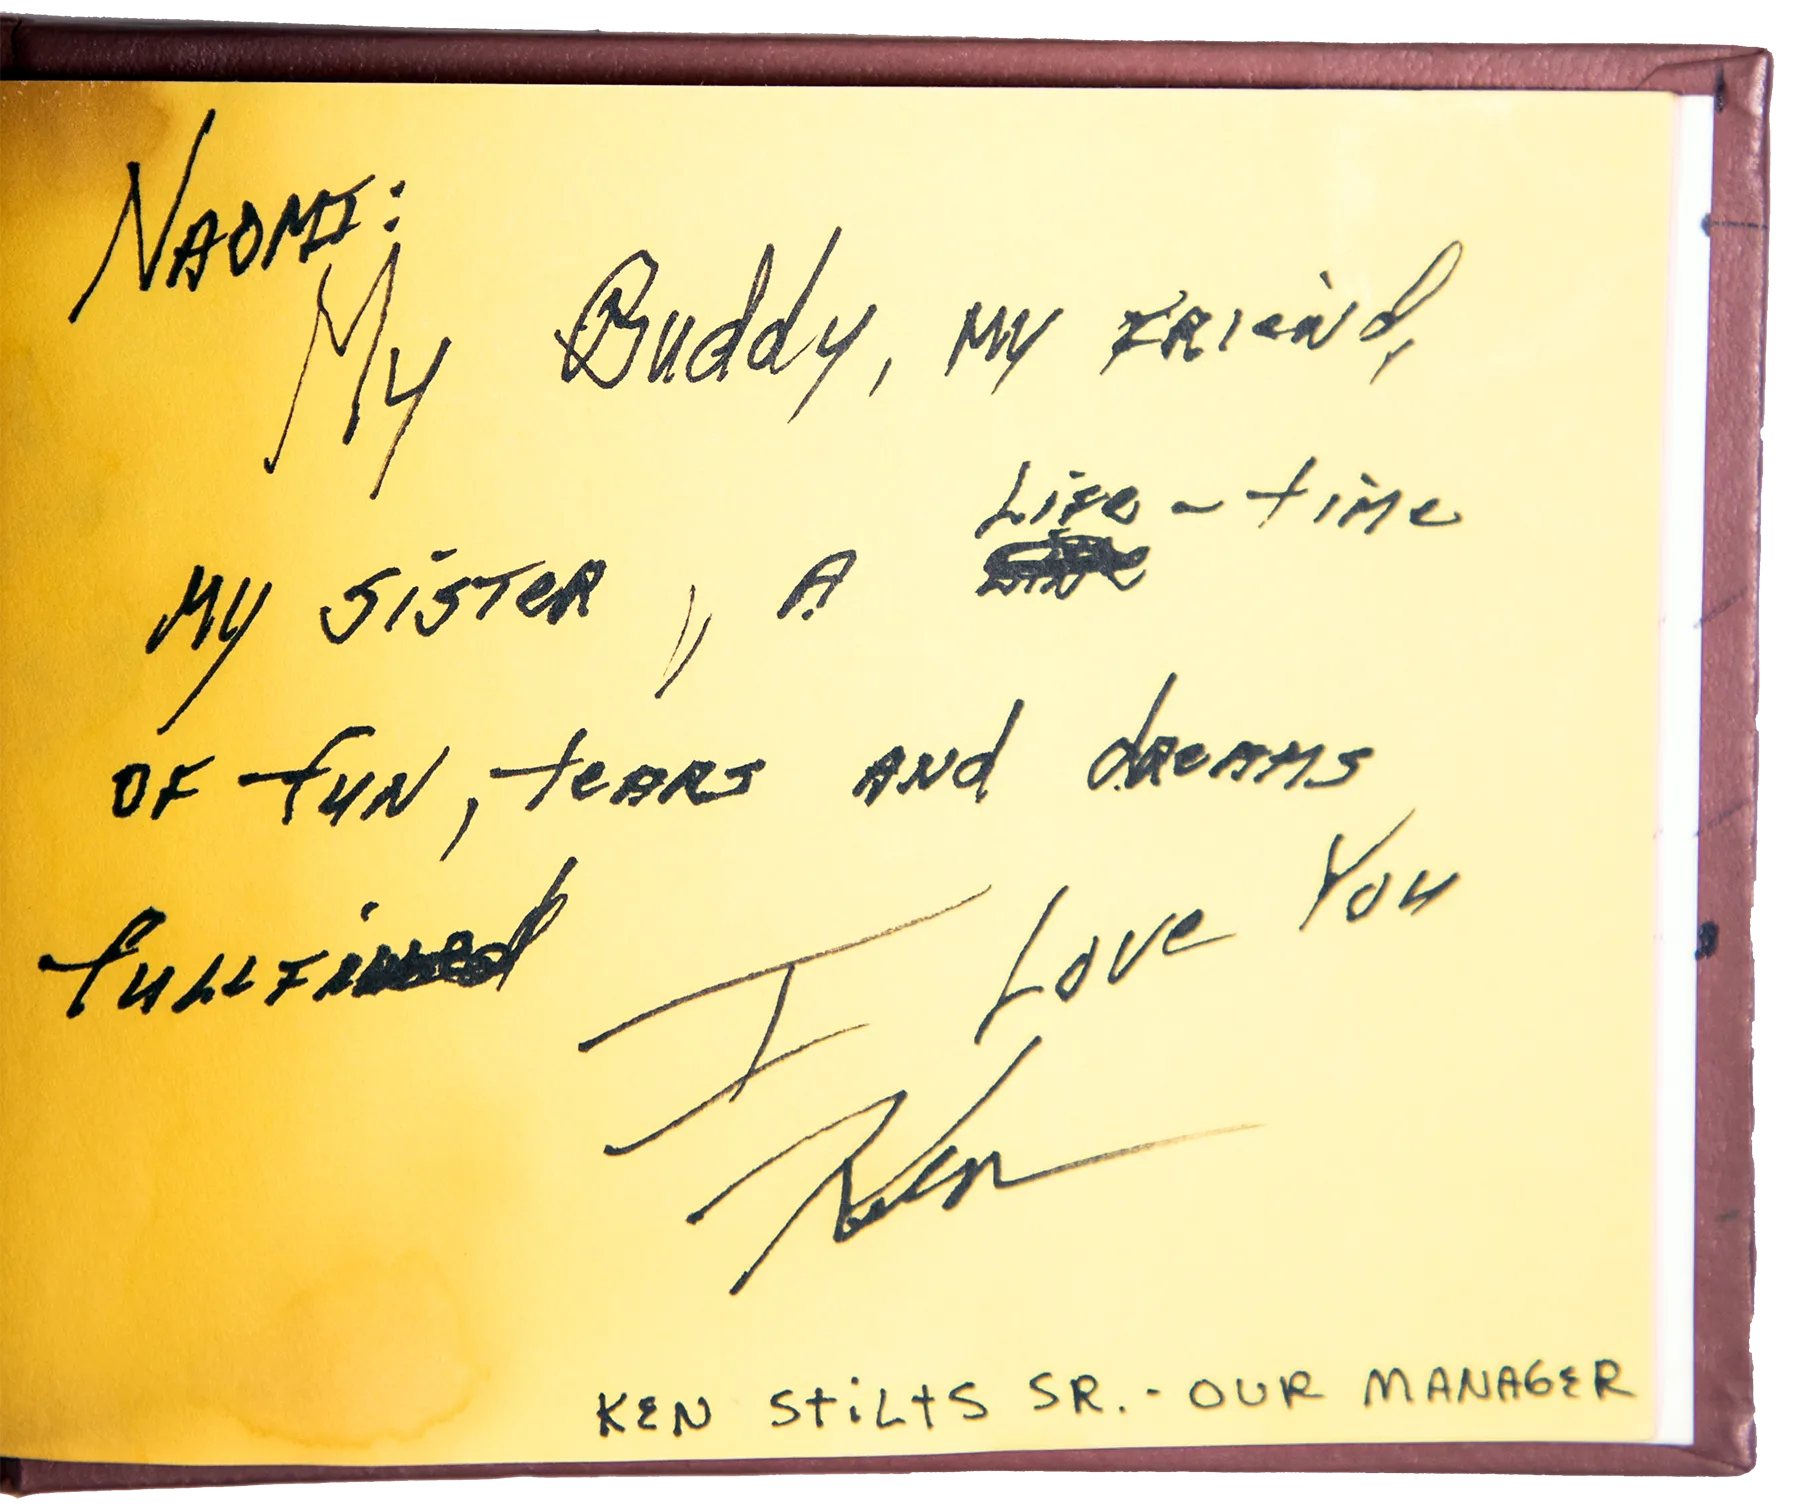 NAOMI:
My Buddy, my friend,
my sister, a Life-time
of fun, tears and dreams
I Love You
Ken
KEN STILTS SR. - OUR MANAGER